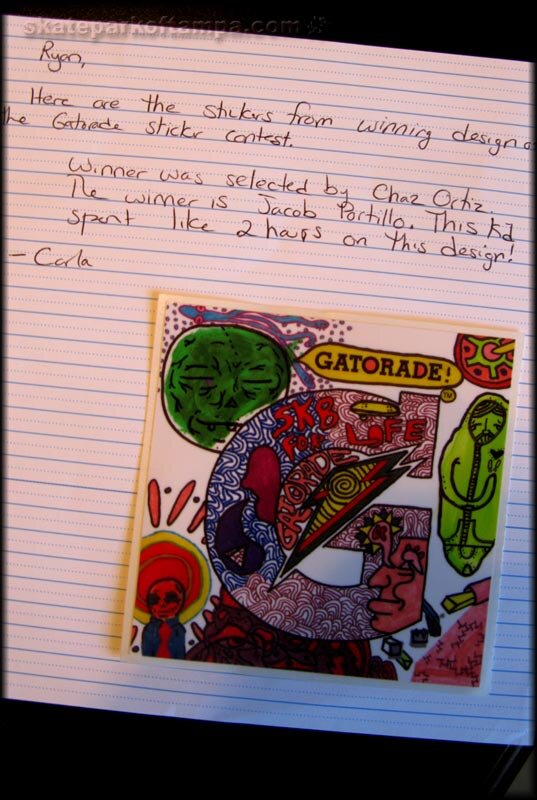 skateparkoftampa.com
Ryan,
Here are the stickers from winning design of
the Gatorade sticker contest.
Winner was selected by Chaz Ortiz.
The winner is Jacob Portillo. This kid
spent like 2 hours on this design!
- Carla
GATORADE!
TM
SK8 LIFE
FOR
GATORADE